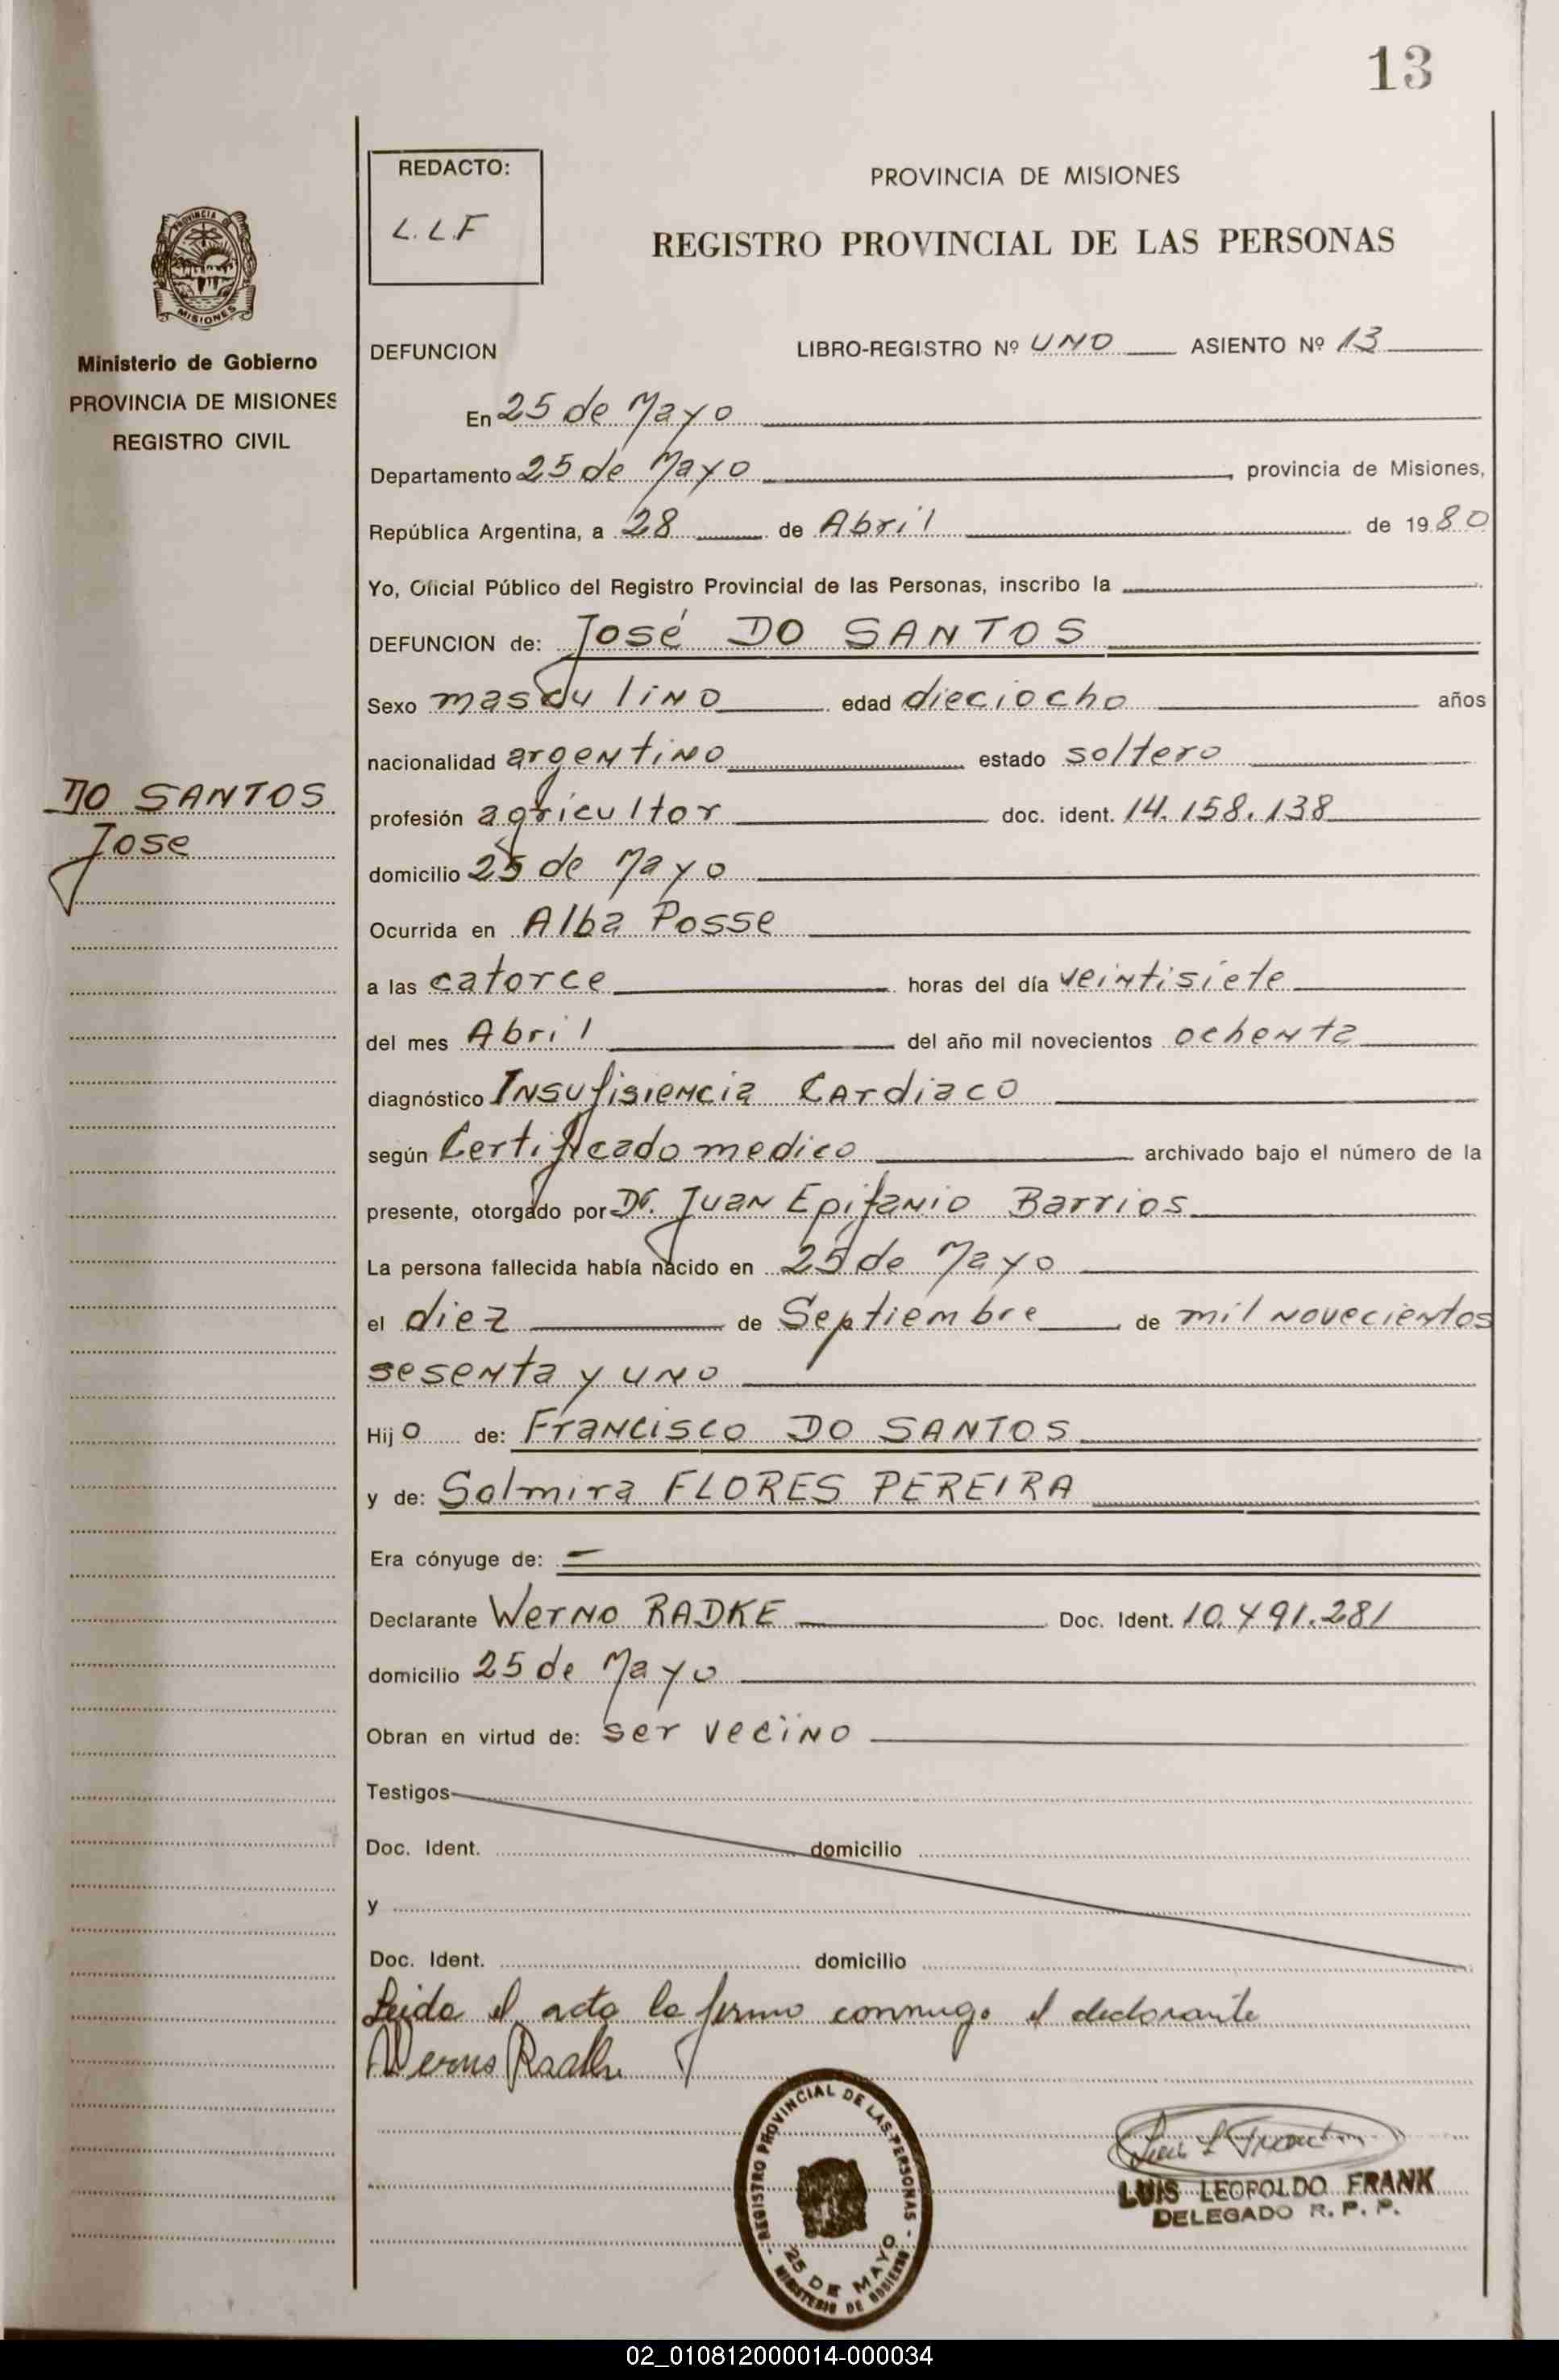 13
REDACTO:
L.L.F
PROVINCIA DE MISIONES
REGISTRO PROVINCIAL DE LAS PERSONAS
PROVINCIA DE
MISIONES
Ministerio de Gobierno
PROVINCIA DE MISIONES
REGISTRO CIVIL
DEFUNCION LIBRO-REGISTRO Nº UNO ASIENTO Nº 13
En 25 de Mayo
Departamento 25 de Mayo, provincia de Misiones,
República Argentina, a 28 de Abril de 1980
Yo, Oficial Público del Registro Provincial de las Personas, inscribo la
DEFUNCION de: José DO SANTOS
Sexo masculino edad dieciocho años
nacionalidad argentino estado soltero
DO SANTOS
Jose
profesión agricultor doc. ident. 14.158.138
domicilio 25 de Mayo
Ocurrida en Alba Posse
a las catorce horas del día veintisiete
del mes Abril del año mil novecientos ochenta
diagnóstico Insufisiencia Cardiaco
según Certificado medico archivado bajo el número de la
presente, otorgado por Dr. Juan Epifanio Barrios
La persona fallecida había nacido en 25 de Mayo
el diez de Septiembre de mil novecientos
sesenta y uno
Hijo de: Francisco DO SANTOS
y de: Solmira FLORES PEREIRA
Era cónyuge de: -
Declarante Werno RADKE Doc. Ident. 10.491.281
domicilio 25 de Mayo
Obran en virtud de: ser vecino
Testigos
Doc. Ident. domicilio
y
Doc. Ident. domicilio
Leida el acta la firmo conmigo el declarante
Werno Radke
REGISTRO PROVINCIAL DE LAS PERSONAS
25 DE MAYO
MINISTERIO DE GOBIERNO
LUIS LEOPOLDO FRANK
DELEGADO R. P. P.
02_010812000014-000034